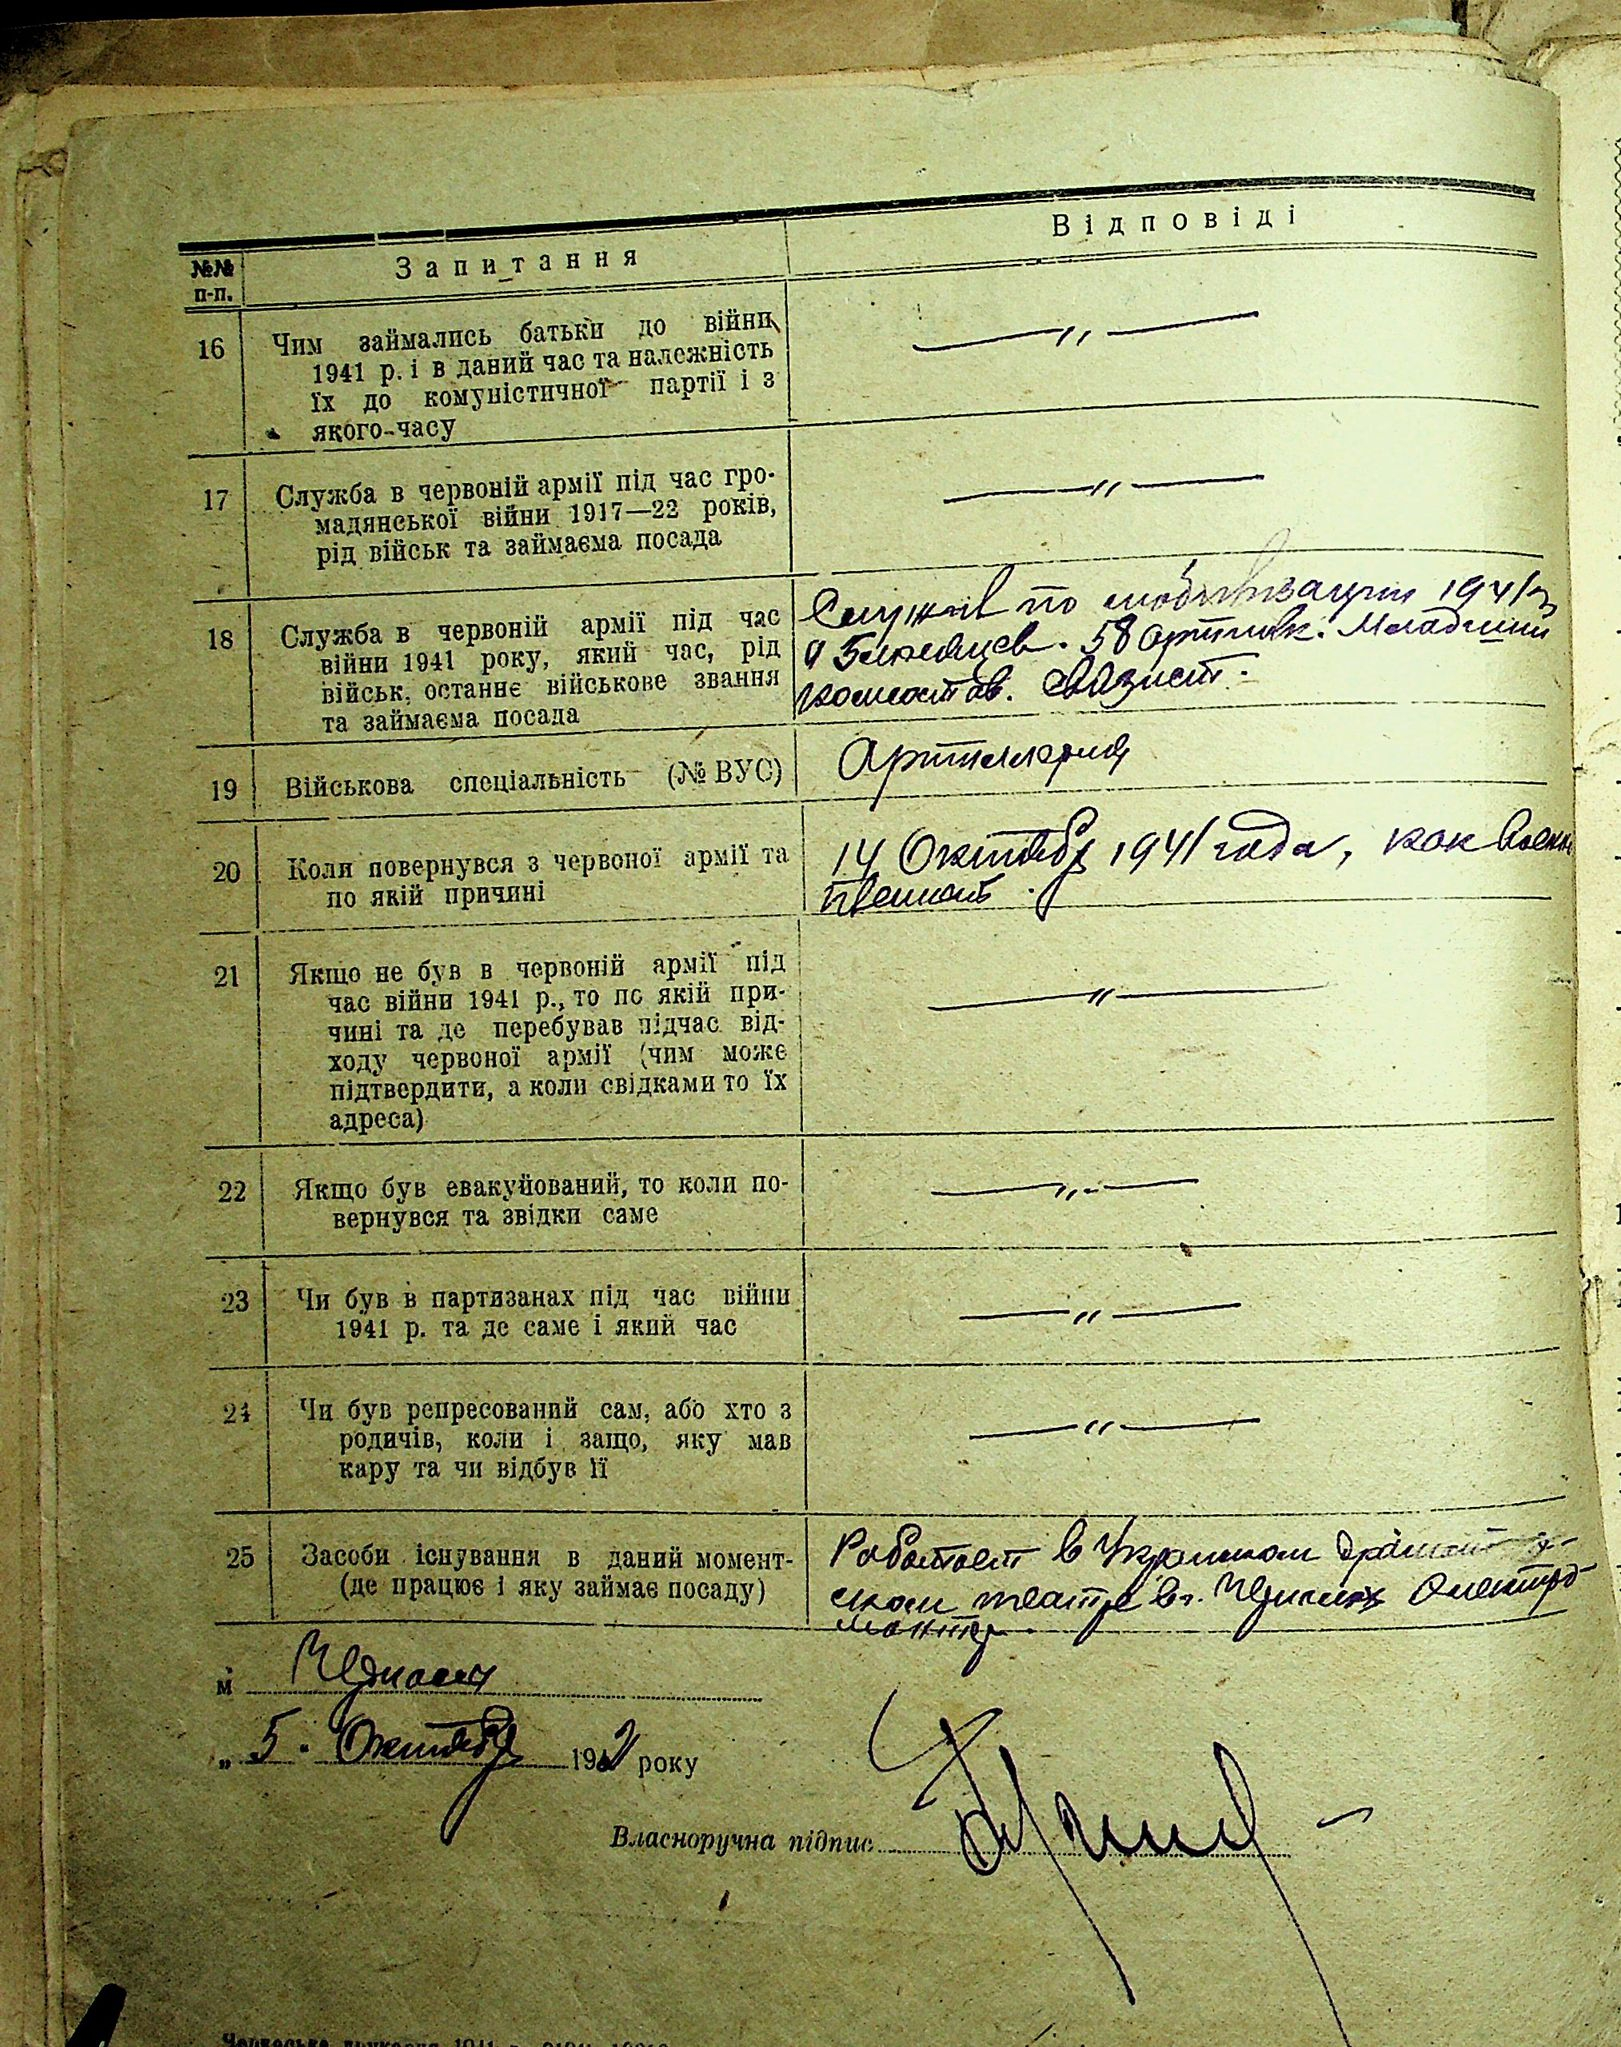 №№ п-п.
Запитання
Відповіді
16
Чим займались батьки до війни
1941 р. і в даний час та належність
їх до комуністичної партії і з
якого-часу
—„—
17
Служба в червоній армії під час гро-
мадянської війни 1917—22 років,
рід військ та займаєма посада
—„—
18
Служба в червоній армії під час
війни 1941 року, який час, рід
військ, останнє військове звання
та займаєма посада
Служив по мобилизации 1941 г
5 месяцев. 58 артполк. Младший
комсостав. связист.
19
Військова спеціальність (№ ВУС)
Артиллерия
20
Коли повернувся з червоної армії та
по якій причині
14 Октября 1941 года, как военно
21
Якщо не був в червоній армії під
час війни 1941 р., то по якій при-
чині та де перебував підчас від-
ходу червоної армії (чим може
підтвердити, а коли свідками то їх
адреса)
—„—
22
Якщо був евакуйований, то коли по-
вернувся та звідки саме
—„—
23
Чи був в партизанах під час війни
1941 р. та де саме і який час
—„—
24
Чи був репресований сам, або хто з
родичів, коли і защо, яку мав
кару та чи відбув її
—„—
25
Засоби існування в даний момент-
(де працює і яку займає посаду)
Работает в Украинском драматиче-
ском театре в г. Черкассах Электро-
монтер.
м Черкассы
„ 5. Октября 1942 року
Власноручна підпис
Черкаська друкарня 1941 р.